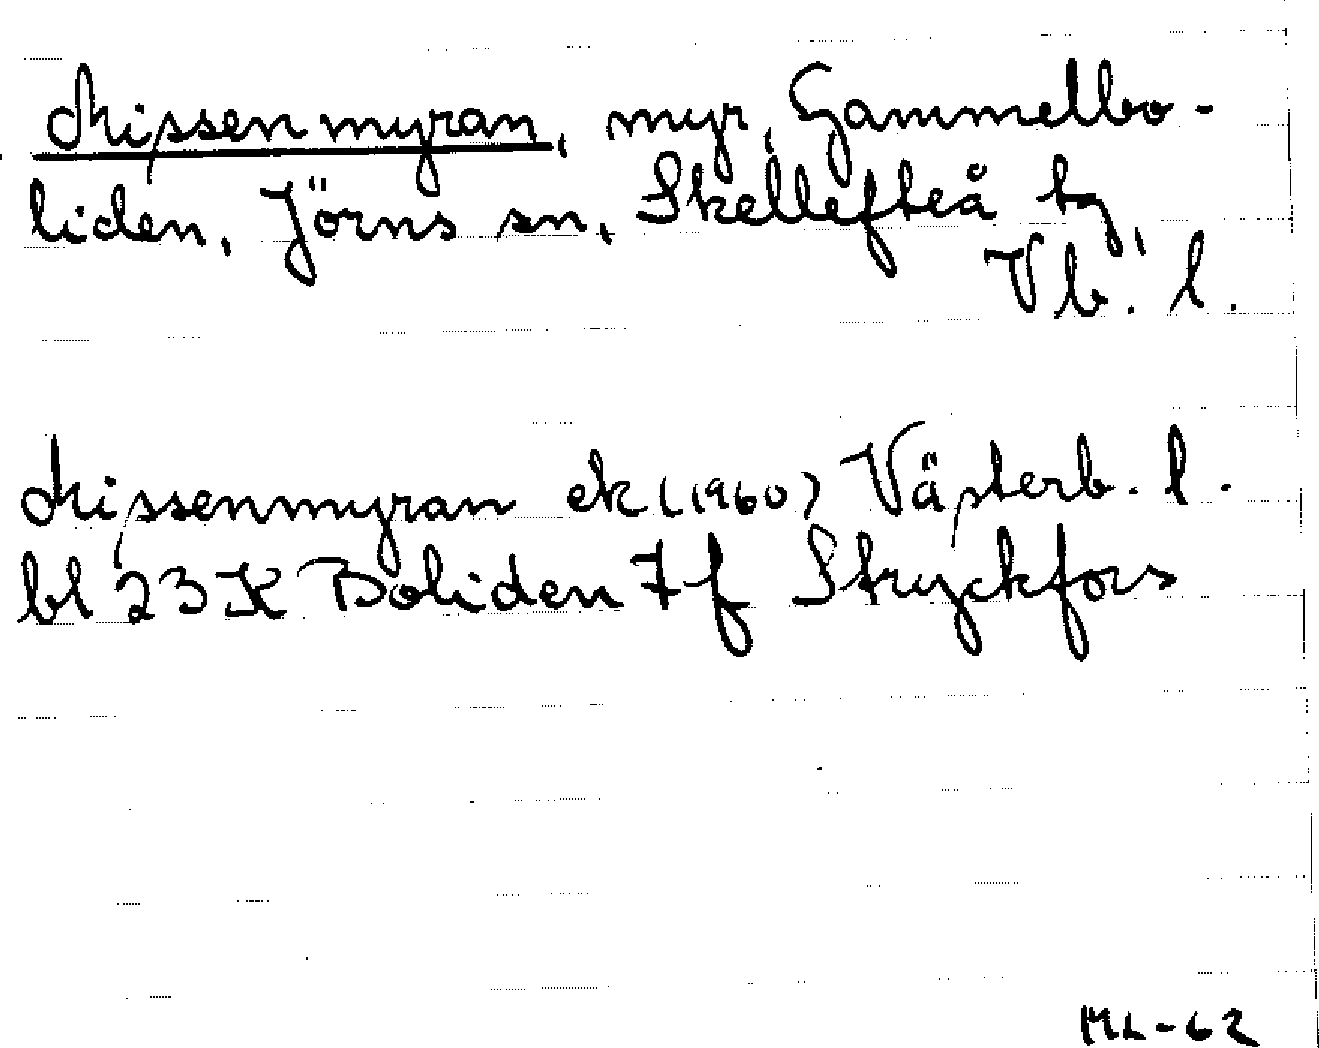 Missenmyran, myr, Gammelbo-
liden, Jörns sn, Skellefteå tg,
Vb. l.
Missenmyran ek (1960) Västerb. l.
bl 23 K Boliden 7 f Stryckfors
ML-62